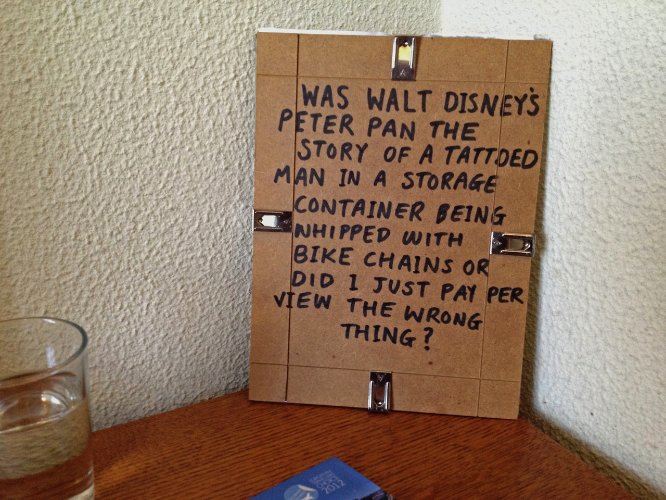 WAS WALT DISNEY'S
PETER PAN THE
STORY OF A TATTOED
MAN IN A STORAGE
CONTAINER BEING
WHIPPED WITH
BIKE CHAINS OR
DID I JUST PAY PER
VIEW THE WRONG
THING?
2012